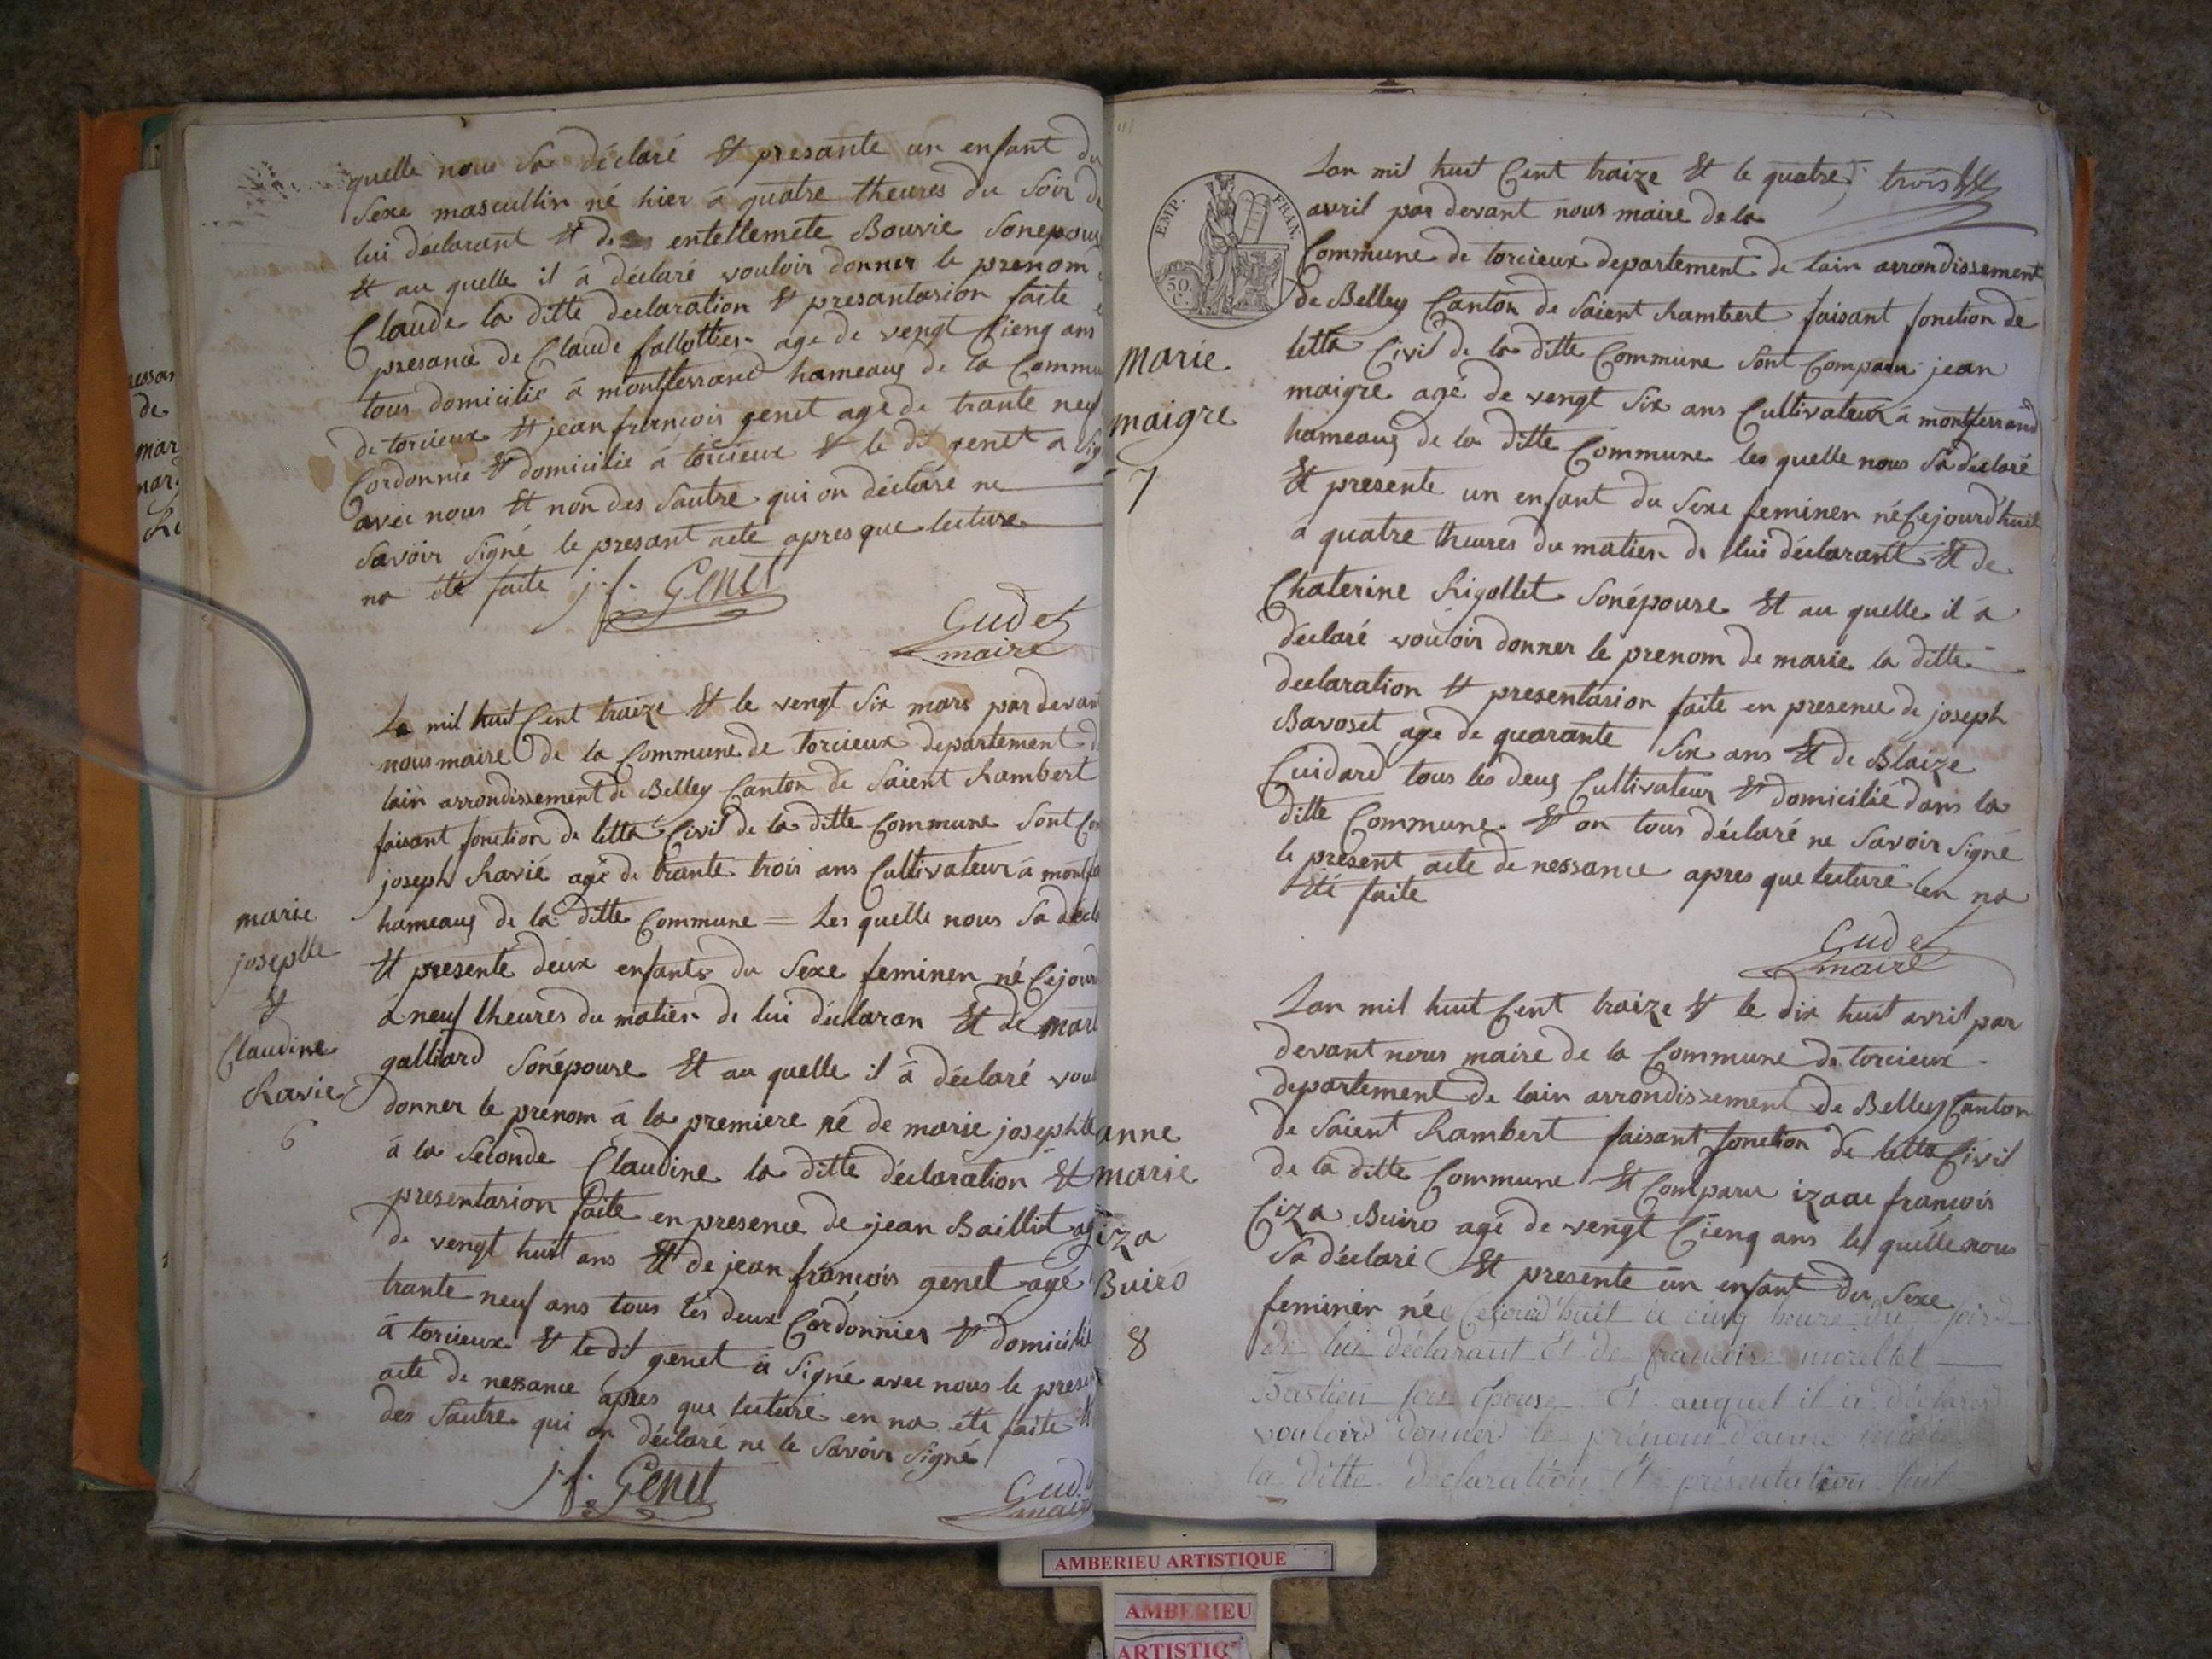 quelle nous Sa déclaré Et presante un enfant du
Sexe mascullin né hier à quatre theures du Soir de
lui déclarant Et de entellemete Bouvie Sonepous
Et au quelle il à déclaré vouloir donner le prenom
Claude la ditte declaration Et presantasion faite
presance de Claude fallottier age de vengt Cienq ans
tous domicilié à montferrand hameaux de la Commu
de torcieux Et jean francois genet age de trante neuf
Cordonnie Et domicilié à torcieux Et le dt genet a Sig
avec nous Et non des Sautre qui on déclaré ne
Savoir Signé le presant acte apres que lecture
na été faite j. f. Genet
Gudet
maire
La mil huit Cent traize Et le vengt Six mars par devant
nous maire de la Commune de torcieux departement d
lain arrondissement de Belley Canton de Saient Rambert
faisant fonction de letta Civil de la ditte Commune Sont Con
joseph Ravié agé de trante trois ans Cultivateur à montfer
hameaux de la ditte Commune = Les quelle nous Sa décla
Et presenté deux enfants du Sexe feminen né Cejour
à neuf theures du matien de lui déclaran Et de mari
galliard Sonépouse Et au quelle il à déclaré voul
donner le prenom à la premiere né de marie josephtte
à la Seconde Claudine la ditte déclaration Et
presentasion faite en presence de jean Baillit ag
de vengt huit ans Et de jean francois genet agé
trante neuf ans tous les deux Cordonnier Et domicilié
à torcieux Et le dt genet à Signé avec nous le presen
acte de nessance apres que lecture en na été faite Et
des Sautre qui on déclaré ne le Savoir Signé
j. f. Genet
Gud
maire
marie
josephtte
Et
Claudine
Ravie
6
EMP. FRAN.
50 C.
Lan mil huit Cent traize Et le quatre trois
avril par devant nous maire de la
Commune de torcieux departement de lain arrondissement
de Belley Canton de Saient Rambert faisant fonction de
letta Civil de la ditte Commune Sont Comparu jean
maigre agé de vengt Six ans Cultivateur à montferrand
hameaux de la ditte Commune les quelle nous Sa déclaré
Et presente un enfant du Sexe feminen né Cejourd'huit
à quatre theures du matien de lui déclarant Et de
Chaterine Rigollet Sonépouse Et au quelle il à
déclaré vouloir donner le prenom de marie la ditte
declaration Et presentasion faite en presence de joseph
Bavoset age de quarante Six ans Et de Blaize
Cuidard tous les deux Cultivateur Et domicilié dans la
ditte Commune Et on tous déclaré ne Savoir Signé
le présent acte de nessance apres que lecture en na
été faite
Gudet
maire
marie
maigre
7
Lan mil huit Cent traize Et le dix huit avril par
devant nous maire de la Commune de torcieux
departement de lain arrondissement de Belley Canton
de Saient Rambert faisant fonction de letta Civil
de la ditte Commune Et Comparu izaac francois
Ciza Buiro agé de vengt Cienq ans les quelle nous
Sa déclaré Et presente un enfant du Sexe
feminin né Cejourd'huit a cinq heure du soir
de lui déclarant Et de francoise morellet
Bastien son épouse Et auquel il a déclaré
vouloir donner le prénom d'anne marie
la ditte declaration Et présentation fait
anne
marie
Ciza
Buiro
8
essan
de
mar
AMBERIEU ARTISTIQUE
AMBERIEU
ARTISTIQ